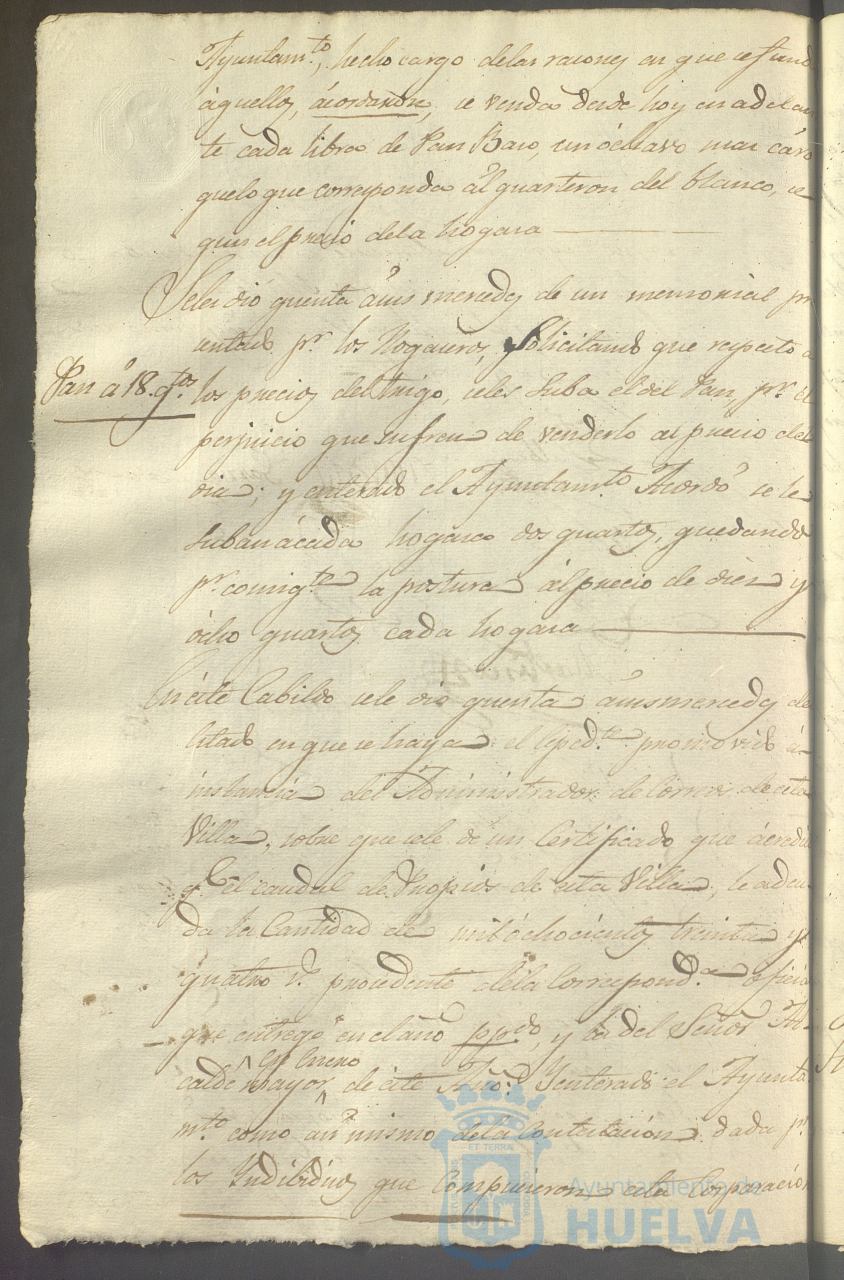 Ayuntam.to, hecho cargo delas razones en que se fund
áquellos, ácordaron, se venda desde hoy en adelan
te cada libra de Pan Bazo, un óchavo mas caro
quelo que corresponda al quarteron del blanco, se
gun el precio dela hogaza
Seles dió quenta ásus mercedes de un memorial pre
sentado pr. los Hogaceros, Solicitando que respecto a
Pan á 18 q.tos
los precios del trigo, seles suba el del Pan, pr. el
perjuicio que sufren de venderlo al precio del
dia; y enterado el Ayuntam.to Acordó se le
suban ácada hogaza dos quartos, quedando
pr. consig.te la postura al precio de diez y
ócho quartos cada hogaza
En éste Cabildo sele dio quenta ásus mercedes del
estado en que se haya el Exped.te promovido á
instancia del Administrador de Correos de esta
Villa, sobre que sele dé un Certificado que ácredite
q.e el caudal de Propios de esta Villa, le adeu
da la Cantidad de mil óchocientos treinta y
quatro r.s procedente dela Correspond.a oficial
que entregó en el año pp.do, y la del Señor Al
calde mayor, de éste Año: Y enterado el Ayunta
en Enero
m.to como asi mismo dela Contestacion dada pr.
los Yndibiduos que Compusieron esta Corporación
ET TERRA
Ayuntamiento de
HUELVA